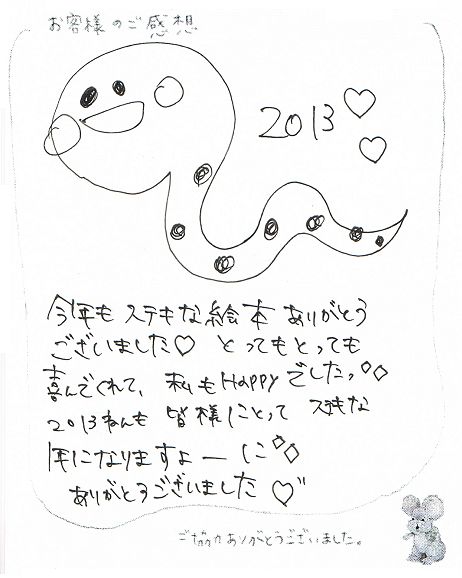 お客様のご感想
2013♡♡
今年もステキな絵本ありがとう
ございました♡ とってもとっても
喜んでくれて、私もHappyでしたっ◇◇
2013ねんも 皆様にとって ステキな
年になりますよーに◇◇
ありがとうございました♡"
ご協力ありがとうございました。